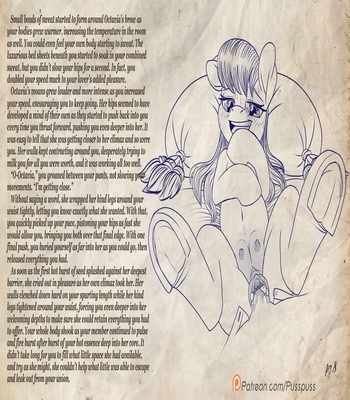 Small beads of sweat started to form around Octavia's brow as
your bodies grew warmer, increasing the temperature in the room
as well. You could even feel your own body starting to sweat. The
luxurious bed sheets beneath you started to soak in your combined
sweat, but you didn't slow your hips for a second. In fact, you
doubled your speed much to your lover's added pleasure.
Octavia's moans grew louder and more intense as you increased
your speed, encouraging you to keep going. Her hips seemed to have
developed a mind of their own as they started to push back into you
every time you thrust forward, pushing you even deeper into her. It
was easy to tell that she was getting closer to her climax and so were
you. Her walls kept contracting around you, desperately trying to
milk you for all you were worth, and it was working all too well.
"O-Octavia," you groaned between your pants, not slowing your
movements. "I'm getting close."
Without saying a word, she wrapped her hind legs around your
waist tightly, letting you know exactly what she wanted. With that,
you quickly picked up your pace, pistoning your hips as fast she
would allow you, bringing you both over that final edge. With one
final push, you buried yourself as far into her as you could go, then
released everything you had.
As soon as the first hot burst of seed splashed against her deepest
barrier, she cried out in pleasure as her own climax took her. Her
walls clenched down hard on your spurting length while her hind
legs tightened around your waist, forcing you even deeper into her
welcoming depths to make sure she could retain everything you had
to offer. Your whole body shook as your member continued to pulse
and fire burst after burst of your hot essence deep into her core. It
didn't take long for you to fill what little space she had available,
and try as she might, she couldn't help what little was able to escape
and leak out from your union.
Patreon.com/Pusspuss